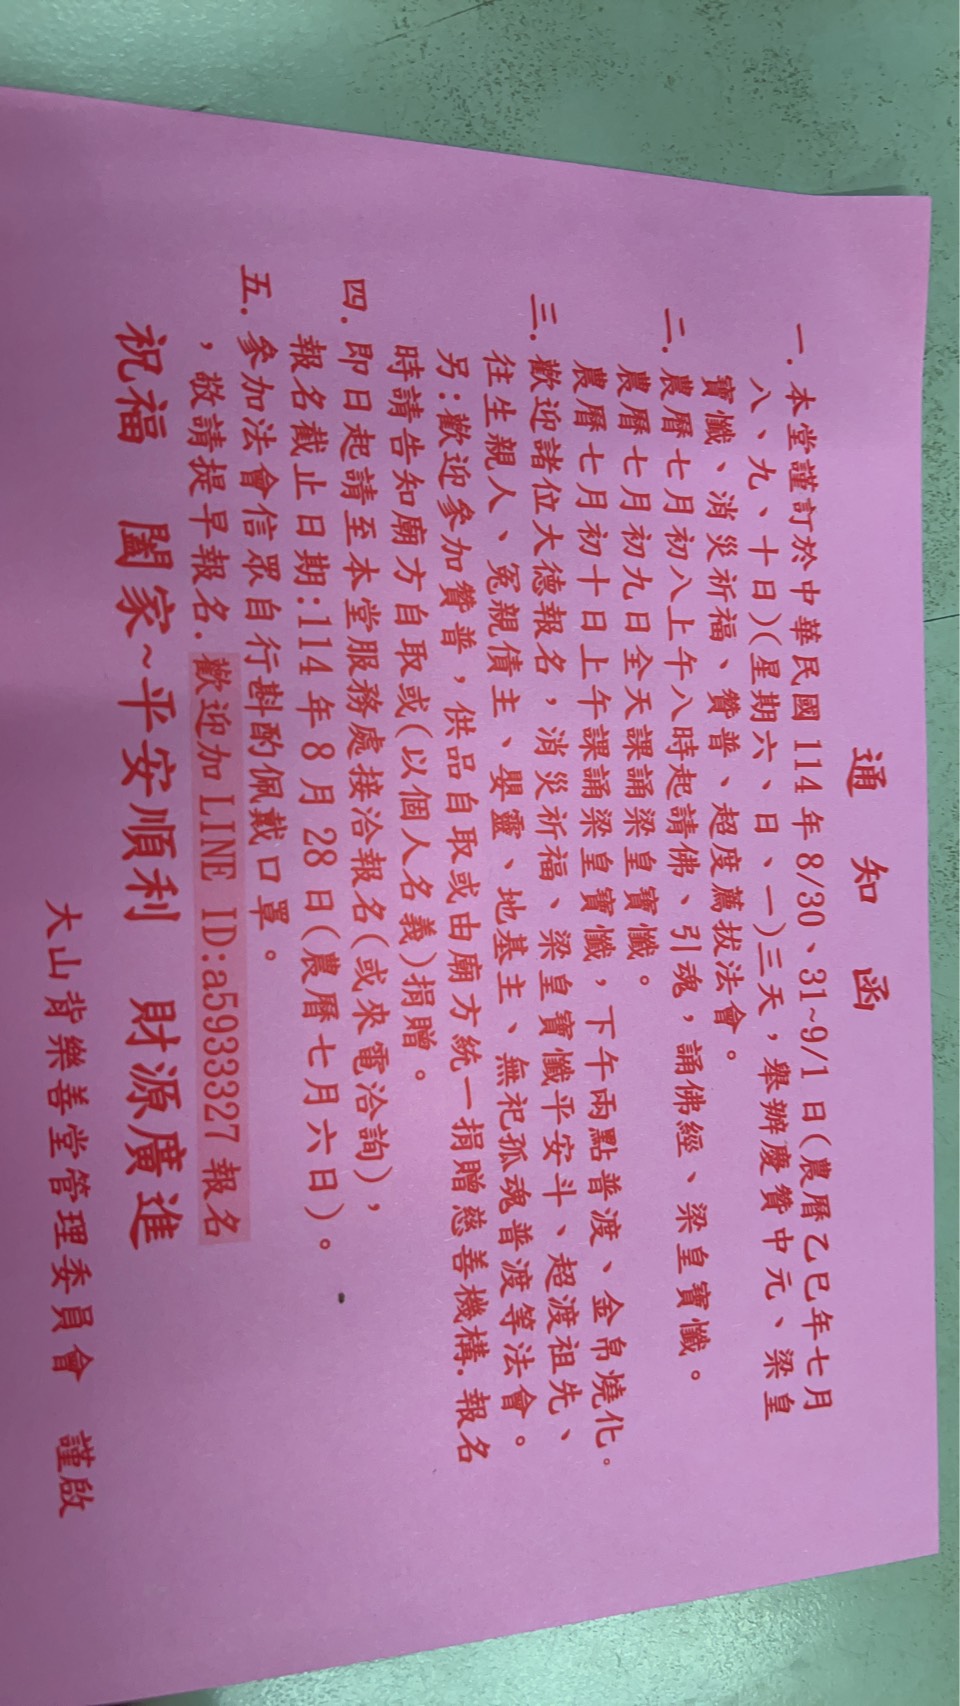 通 知 函
一.本堂謹訂於中華民國114年8/30、31~9/1日(農曆乙巳年七月
八、九、十日)(星期六、日、一)三天，舉辦慶贊中元、梁皇
寶懺、消災祈福、贊普、超度薦拔法會。
二.農曆七月初八上午八時起請佛、引魂，誦佛經、梁皇寶懺。
農曆七月初九日全天課誦梁皇寶懺。
農曆七月初十日上午課誦梁皇寶懺，下午兩點普渡、金帛燒化。
三.歡迎諸位大德報名，消災祈福、梁皇寶懺平安斗、超渡祖先、
往生親人、冤親債主、嬰靈、地基主、無祀孤魂普渡等法會。
另:歡迎參加贊普，供品自取或由廟方統一捐贈慈善機構.報名
時請告知廟方自取或(以個人名義)捐贈。
四.即日起請至本堂服務處接洽報名(或來電洽詢)，
報名截止日期:114年8月28日(農曆七月六日)。
五.參加法會信眾自行斟酌佩戴口罩。
，敬請提早報名.歡迎加LINE ID:a5933327報名
祝福 闔家~平安順利 財源廣進
大山背樂善堂管理委員會 謹啟